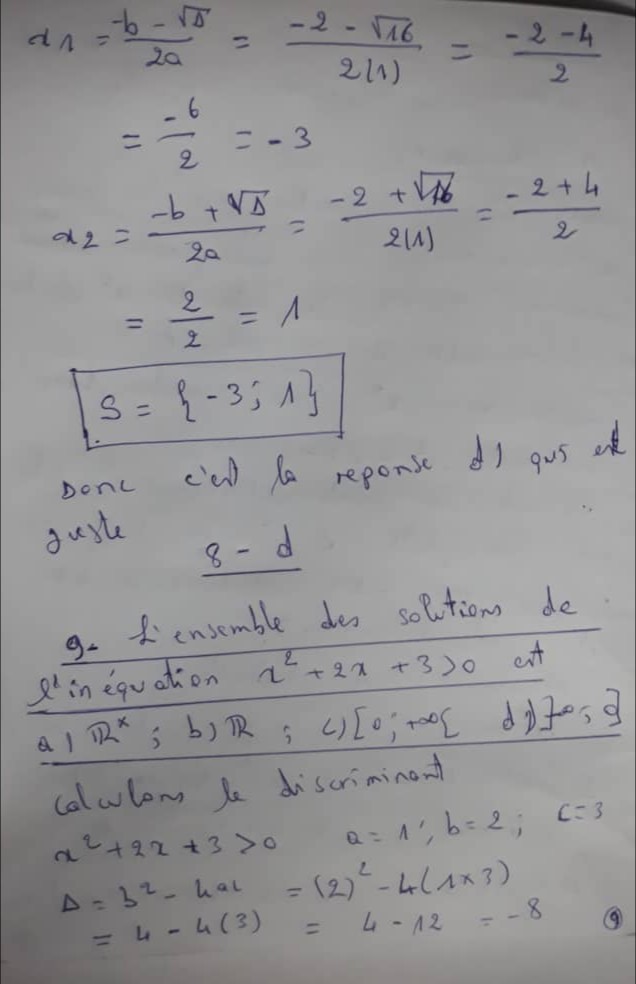 x1 = (-b - √Δ)/2a = (-2 - √16)/2(1) = (-2 - 4)/2
= -6/2 = -3
x2 = (-b + √Δ)/2a = (-2 + √16)/2(1) = (-2 + 4)/2
= 2/2 = 1
S = {-3; 1}
Donc c'est la reponse d) qui est
juste
8 - d
9- L'ensemble des solutions de
l'inéquation x² + 2x + 3 > 0 est
a) ℝ* ; b) ℝ ; c) [0; +∞[ d) ]-∞; 0]
calculons le discriminant
x² + 2x + 3 > 0 a = 1; b = 2; c = 3
Δ = b² - 4ac = (2)² - 4(1×3)
= 4 - 4(3) = 4 - 12 = -8 9